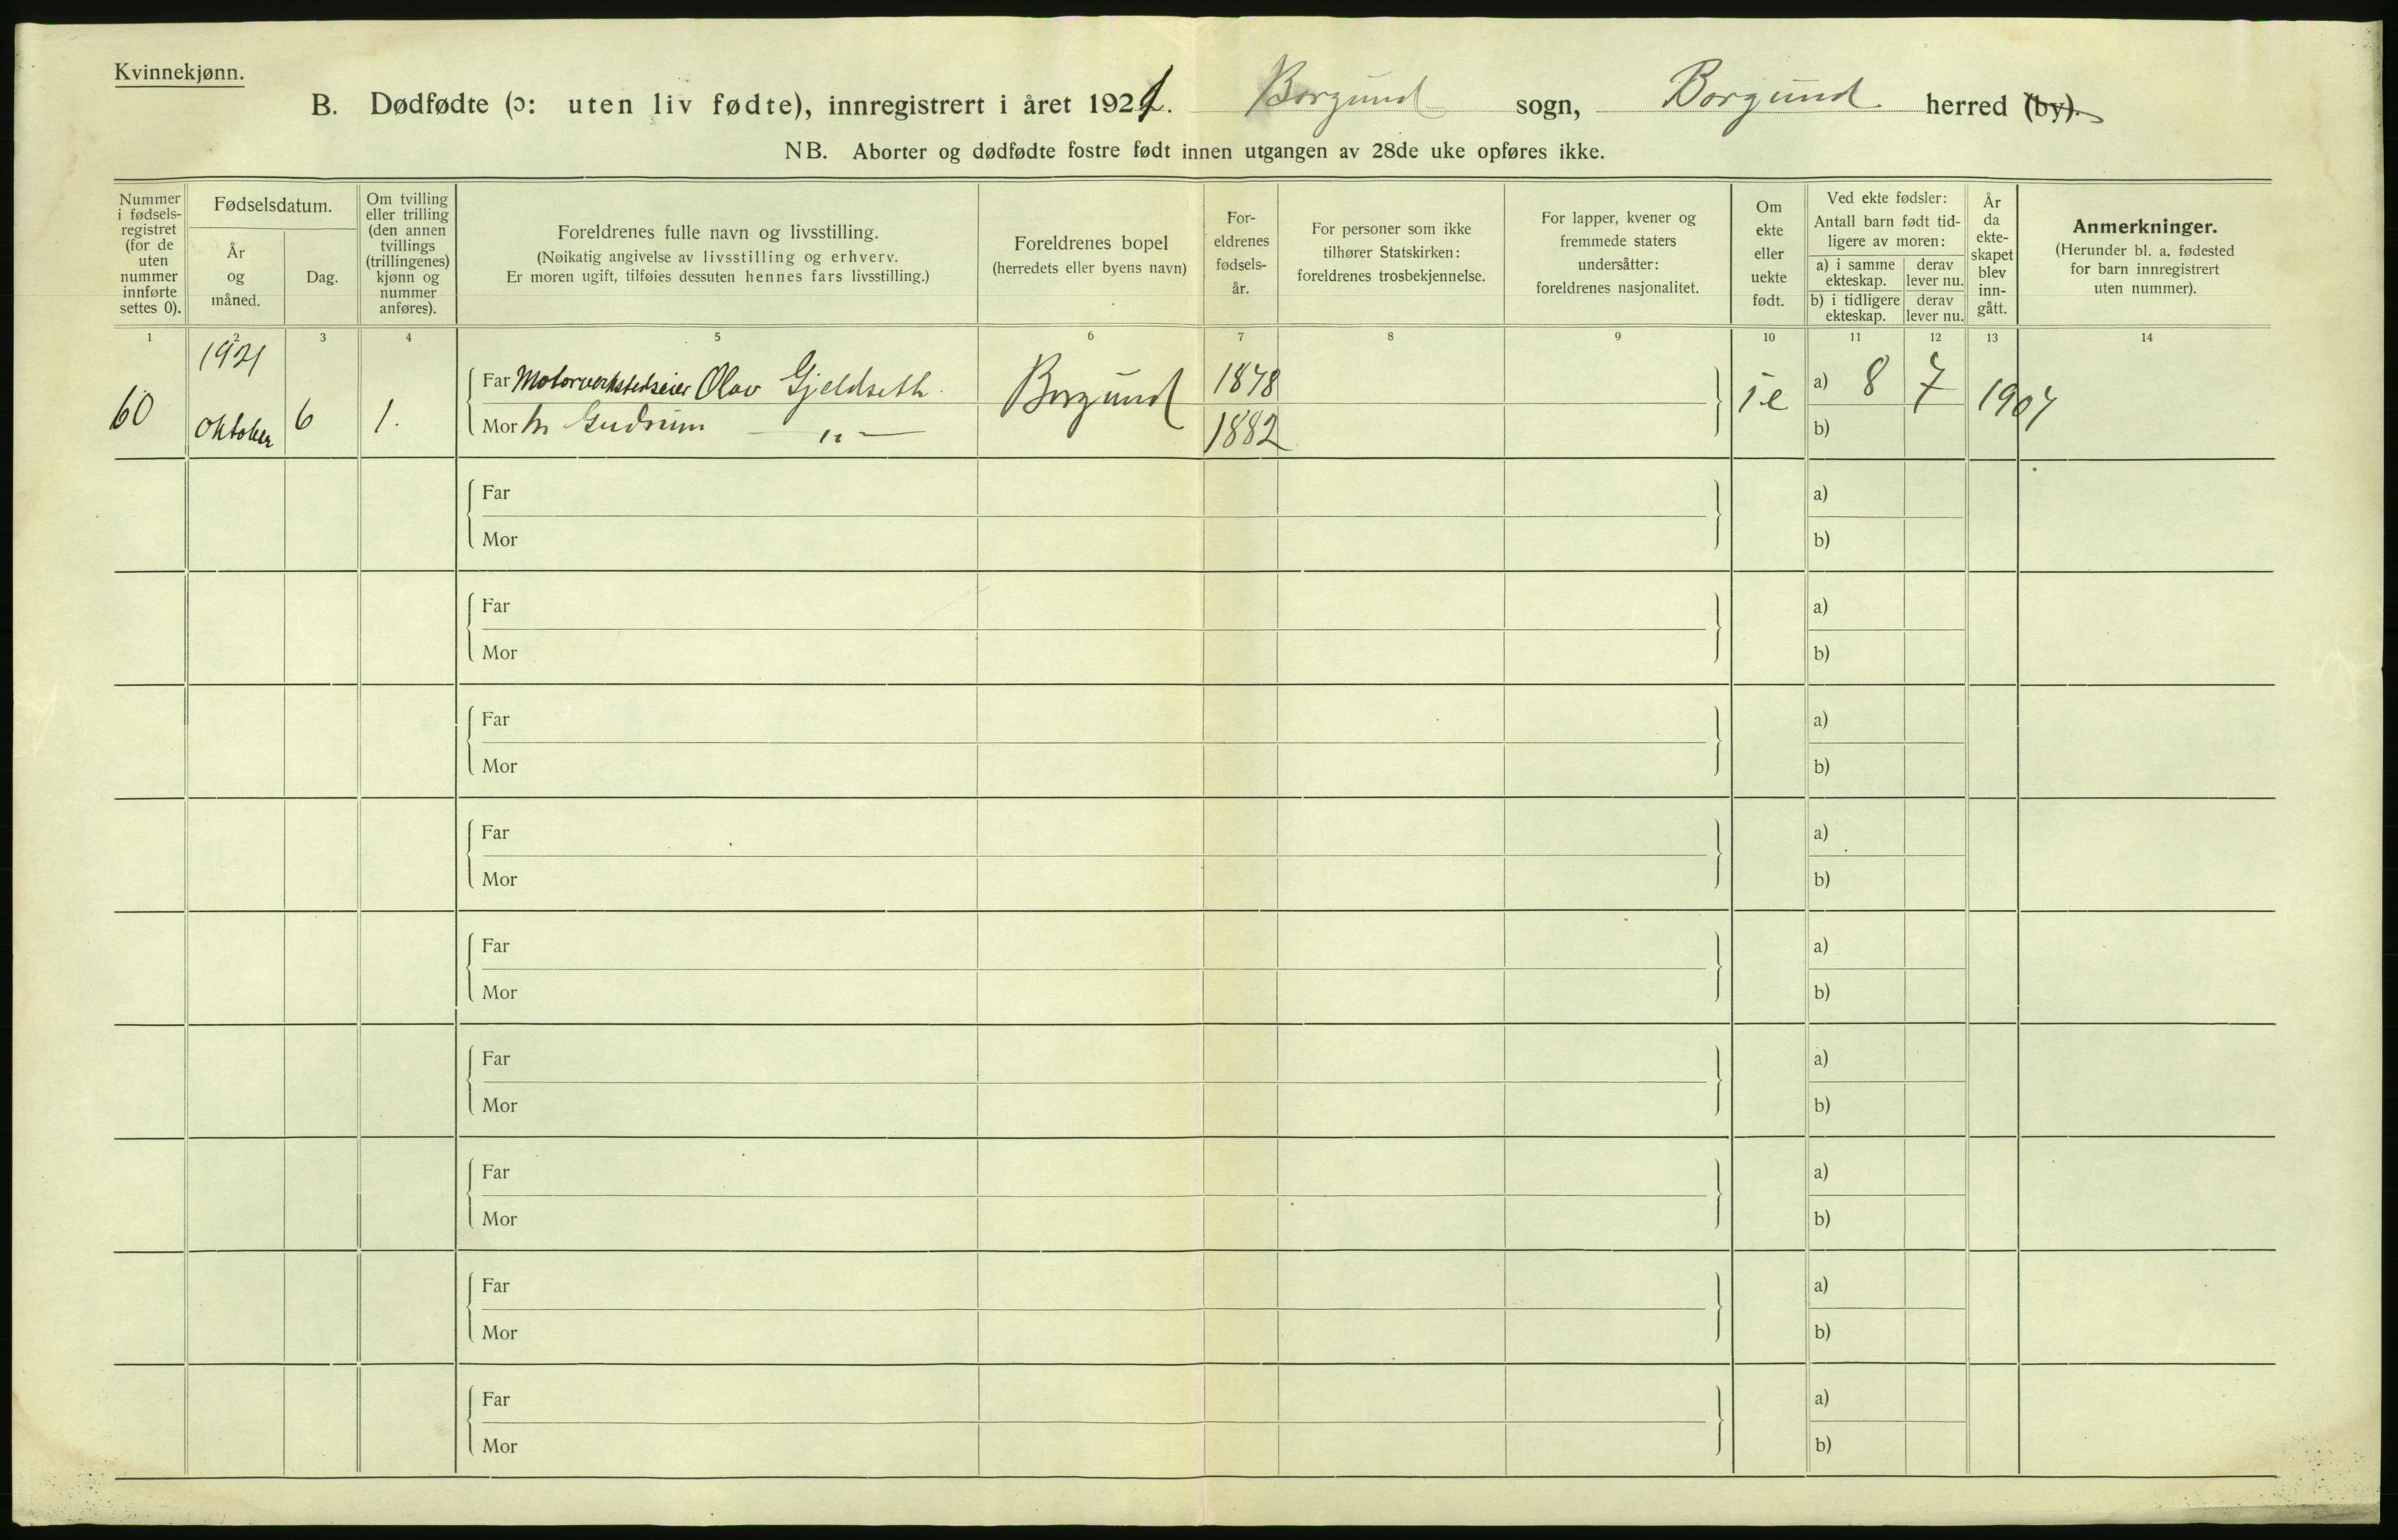 Kvinnekjønn.
B. Dødfødte (ɔ: uten liv fødte), innregistrert i året 1921. Borgund sogn, Borgund herred (by).
NB. Aborter og dødfødte fostre født innen utgangen av 28de uke opføres ikke.
Nummer i fødsels-registret (for de uten nummer innførte settes 0).
Fødselsdatum.
År og måned.
Dag.
Om tvilling eller trilling (den annen tvillings (trillingenes) kjønn og nummer anføres).
Foreldrenes fulle navn og livsstilling.
(Nøikatig angivelse av livsstilling og erhverv.
Er moren ugift, tilføies dessuten hennes fars livsstilling.)
Foreldrenes bopel
(herredets eller byens navn)
For-eldrenes fødsels-år.
For personer som ikke tilhører Statskirken: foreldrenes trosbekjennelse.
For lapper, kvener og fremmede staters undersåtter: foreldrenes nasjonalitet.
Om ekte eller uekte født.
Ved ekte fødsler:
Antall barn født tid-ligere av moren:
a) i samme ekteskap.
derav lever nu.
b) i tidligere ekteskap.
derav lever nu.
År da ekte-skapet blev inn-gått.
Anmerkninger.
(Herunder bl. a. fødested for barn innregistrert uten nummer).
1 2 3 4 5 6 7 8 9 10 11 12 13 14
1921
60 Oktober 6 1.
Far Motorverkstedseier Olav Gjeldseth Borgund 1878 a) 8 7 1907
Mor Gudrun —〃— 1882 b)
Far a)
Mor b)
Far a)
Mor b)
Far a)
Mor b)
Far a)
Mor b)
Far a)
Mor b)
Far a)
Mor b)
Far a)
Mor b)
Far a)
Mor b)
Far a)
Mor b)